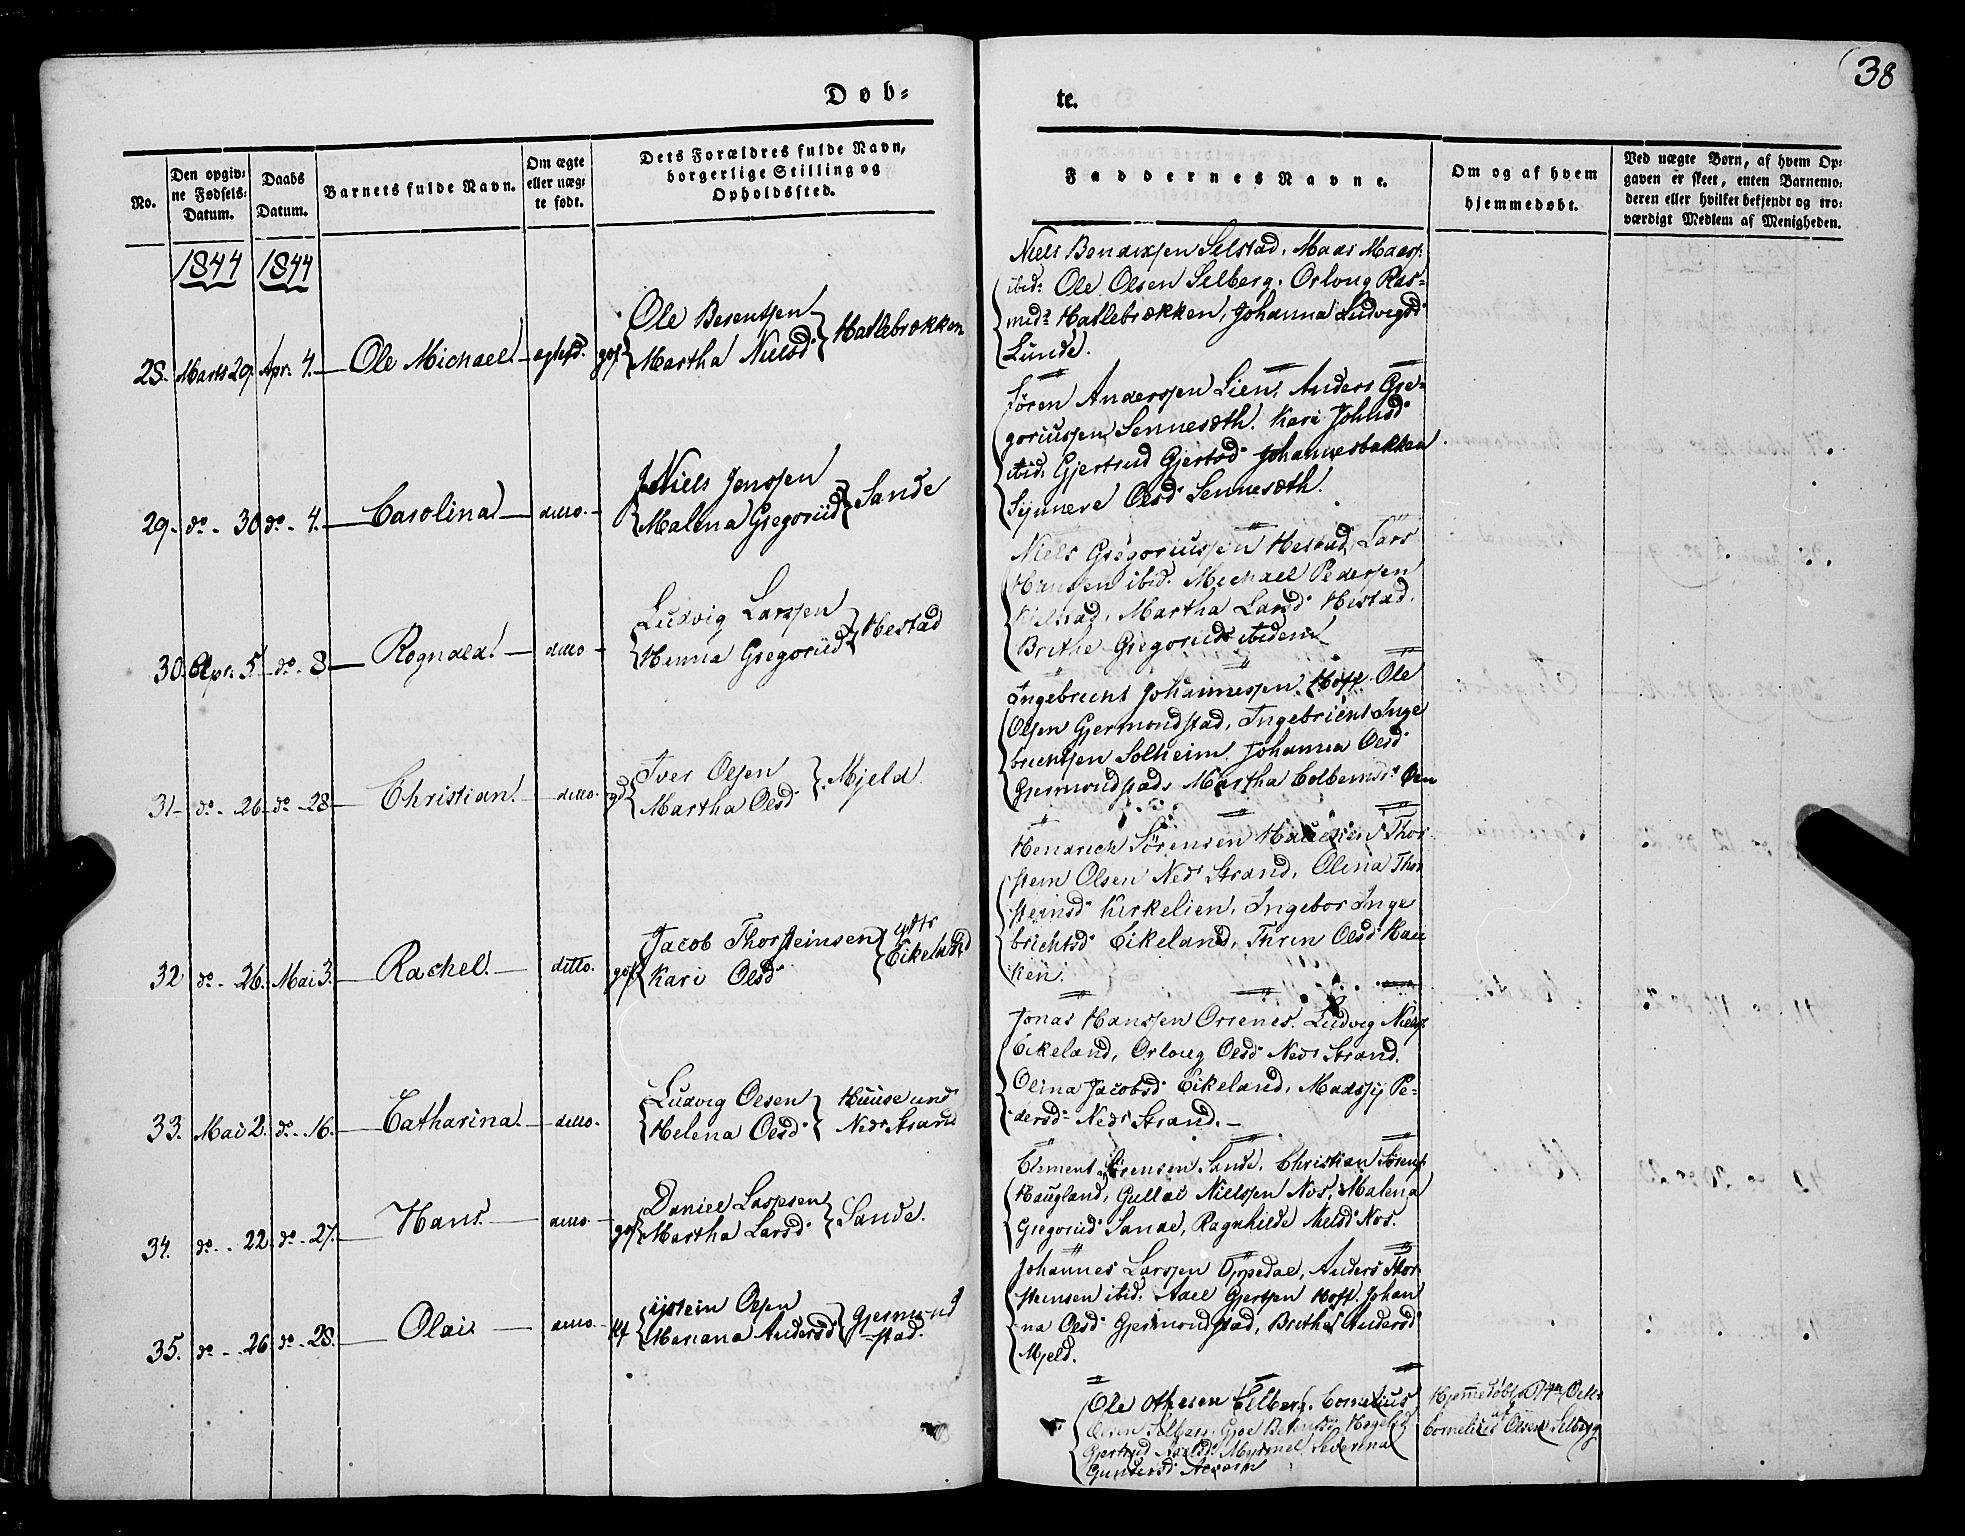 38
Døb=
te.
No.
Den opgiv=
ne Fødsels=
Datum.
Daabs
Datum.
Barnets fulde Navn.
Om ægte
eller uæg=
te født.
Dets Forældres fulde Navn,
borgerlige Stilling og
Opholdssted.
Faddernes Navne.
Om og af hvem
hjemmedøbt.
Ved uægte Børn, af hvem Op=
gaven er skeet, enten Barnemo=
deren eller hvilket bekjendt og tro=
værdigt Medlem af Menigheden.
1844 1844
28. Marts 29. Apr. 4. Ole Michael.
Ole Berentsen
Martha Nielsd. Hatlebrækken
Niels Bendixsen Selstad, Maas Maass.
ibid: Ole Olsen Selberg. Orloug Ras=
musd: Hatlebrækken, Johanna Ludvigsd:
Lunde.
29. do. 30 do. 4. Carolina ditto.
Niels Jenssen
Malena Gregoriid. Sande
Søren Anderssen Lien, Anders Gre=
goriussen Sennesæth. Kari Johnsd:
ibid: Gjertrud Gjertsd: Johannesbakken
Synneve Olsd: Sennesæth.
30. Apr. 5 do. 8 Rognald. ditto
Ludvig Larssen
Henna Gregoriid. Hestad
Niels Gregoriussen Hestad, Lars
Hanssen ibid. Michael Pedersen
Hestad, Martha Larsd: Hestad.
Brithe Gregoriid: ibidem
31 do. 26 do. 28 Christian. ditto.
Iver Olsen
Martha Olsd: Mjeld.
Ingebricht Johannessen Hoff. Ole
Olsen Gjermondstad, Ingebricht Inge
brichtsen Solheim. Johanna Olsd:
Gjermondstad, Martha Colbernsd:
32 do. 26. Mai 3. Rachel. ditto.
Jacob Thorsteinsen
Kari Olsd: Eikeland
Hendrich Sörensen Haukien Thor
stein Olsen Nedr Strand, Olina Thor
steinsd: Kirkelien, Ingebor Inge
brichtsd: Eikeland, Thrin Olsd: Hau
kien.
33. Mai 2. do. 16. Catharina. ditto.
Ludvig Olsen
Helena Olsd: Nedr Strand
Jonas Hanssen Orsenes. Ludvig Niels.
Eikeland, Orloug Olsd: Nedr Strand.
Olina Jacobsd: Eikeland, Madssy Pe=
dersd: Nedr Strand.
34. do. 22. do. 27. Hans. ditto
Daniel Larssen
Martha Larsd: Sande.
Clement Sörensen Sande, Christian Sörens.
Haugland, Gullai Nielssen Nos, Malena
Gregoriid: Sande, Ragnhilde Nielsd: Nos.
35. do. 26. do. 28. Olai. ditto.
Ijstein Olsen
Mariana Andersd: Gjermond
=stad.
Johannes Larssen Oppedal, Anders Thor
steinsen ibid: Axel Gjertsen Hoff. Johan
na Olsd: Gjermondstad, Brithe Andersd:
Mjeld.
Ole Selberg. Cornelius
Olsen Selberg
Gjertrud Axelsd: Myrmel Severina
Gundersd:
Hjemmedøbt
Cornelius Olsen Selberg